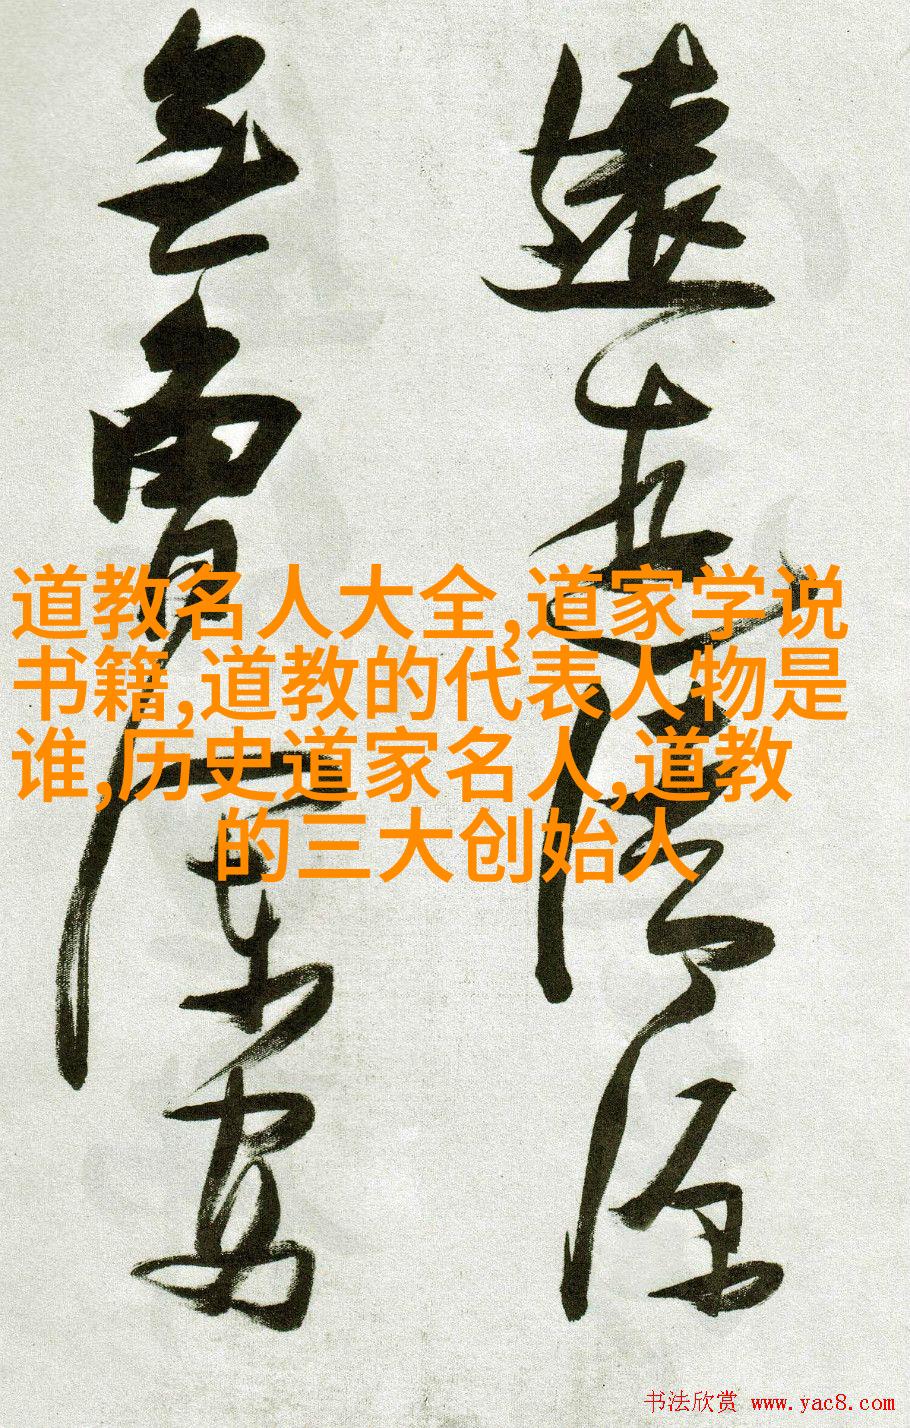 遠
安
道教名人大全,道家学说
书籍,道教的代表人物是
谁,历史道家名人,道教
的三大创始人
书法欣赏 www.yac8.com